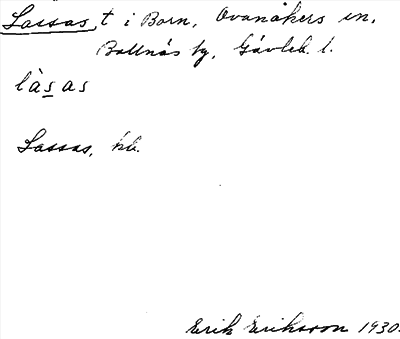 Lassas, t i Born, Ovanåkers sn,
Bollnäs tg, Gävleb. l.
làsas
Lassas, kb.
Erik Eriksson 1930.